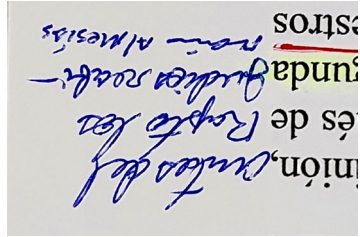 inión, antes del
és de Rapto los
gunda judíos recibi-
estros rán al Mesías